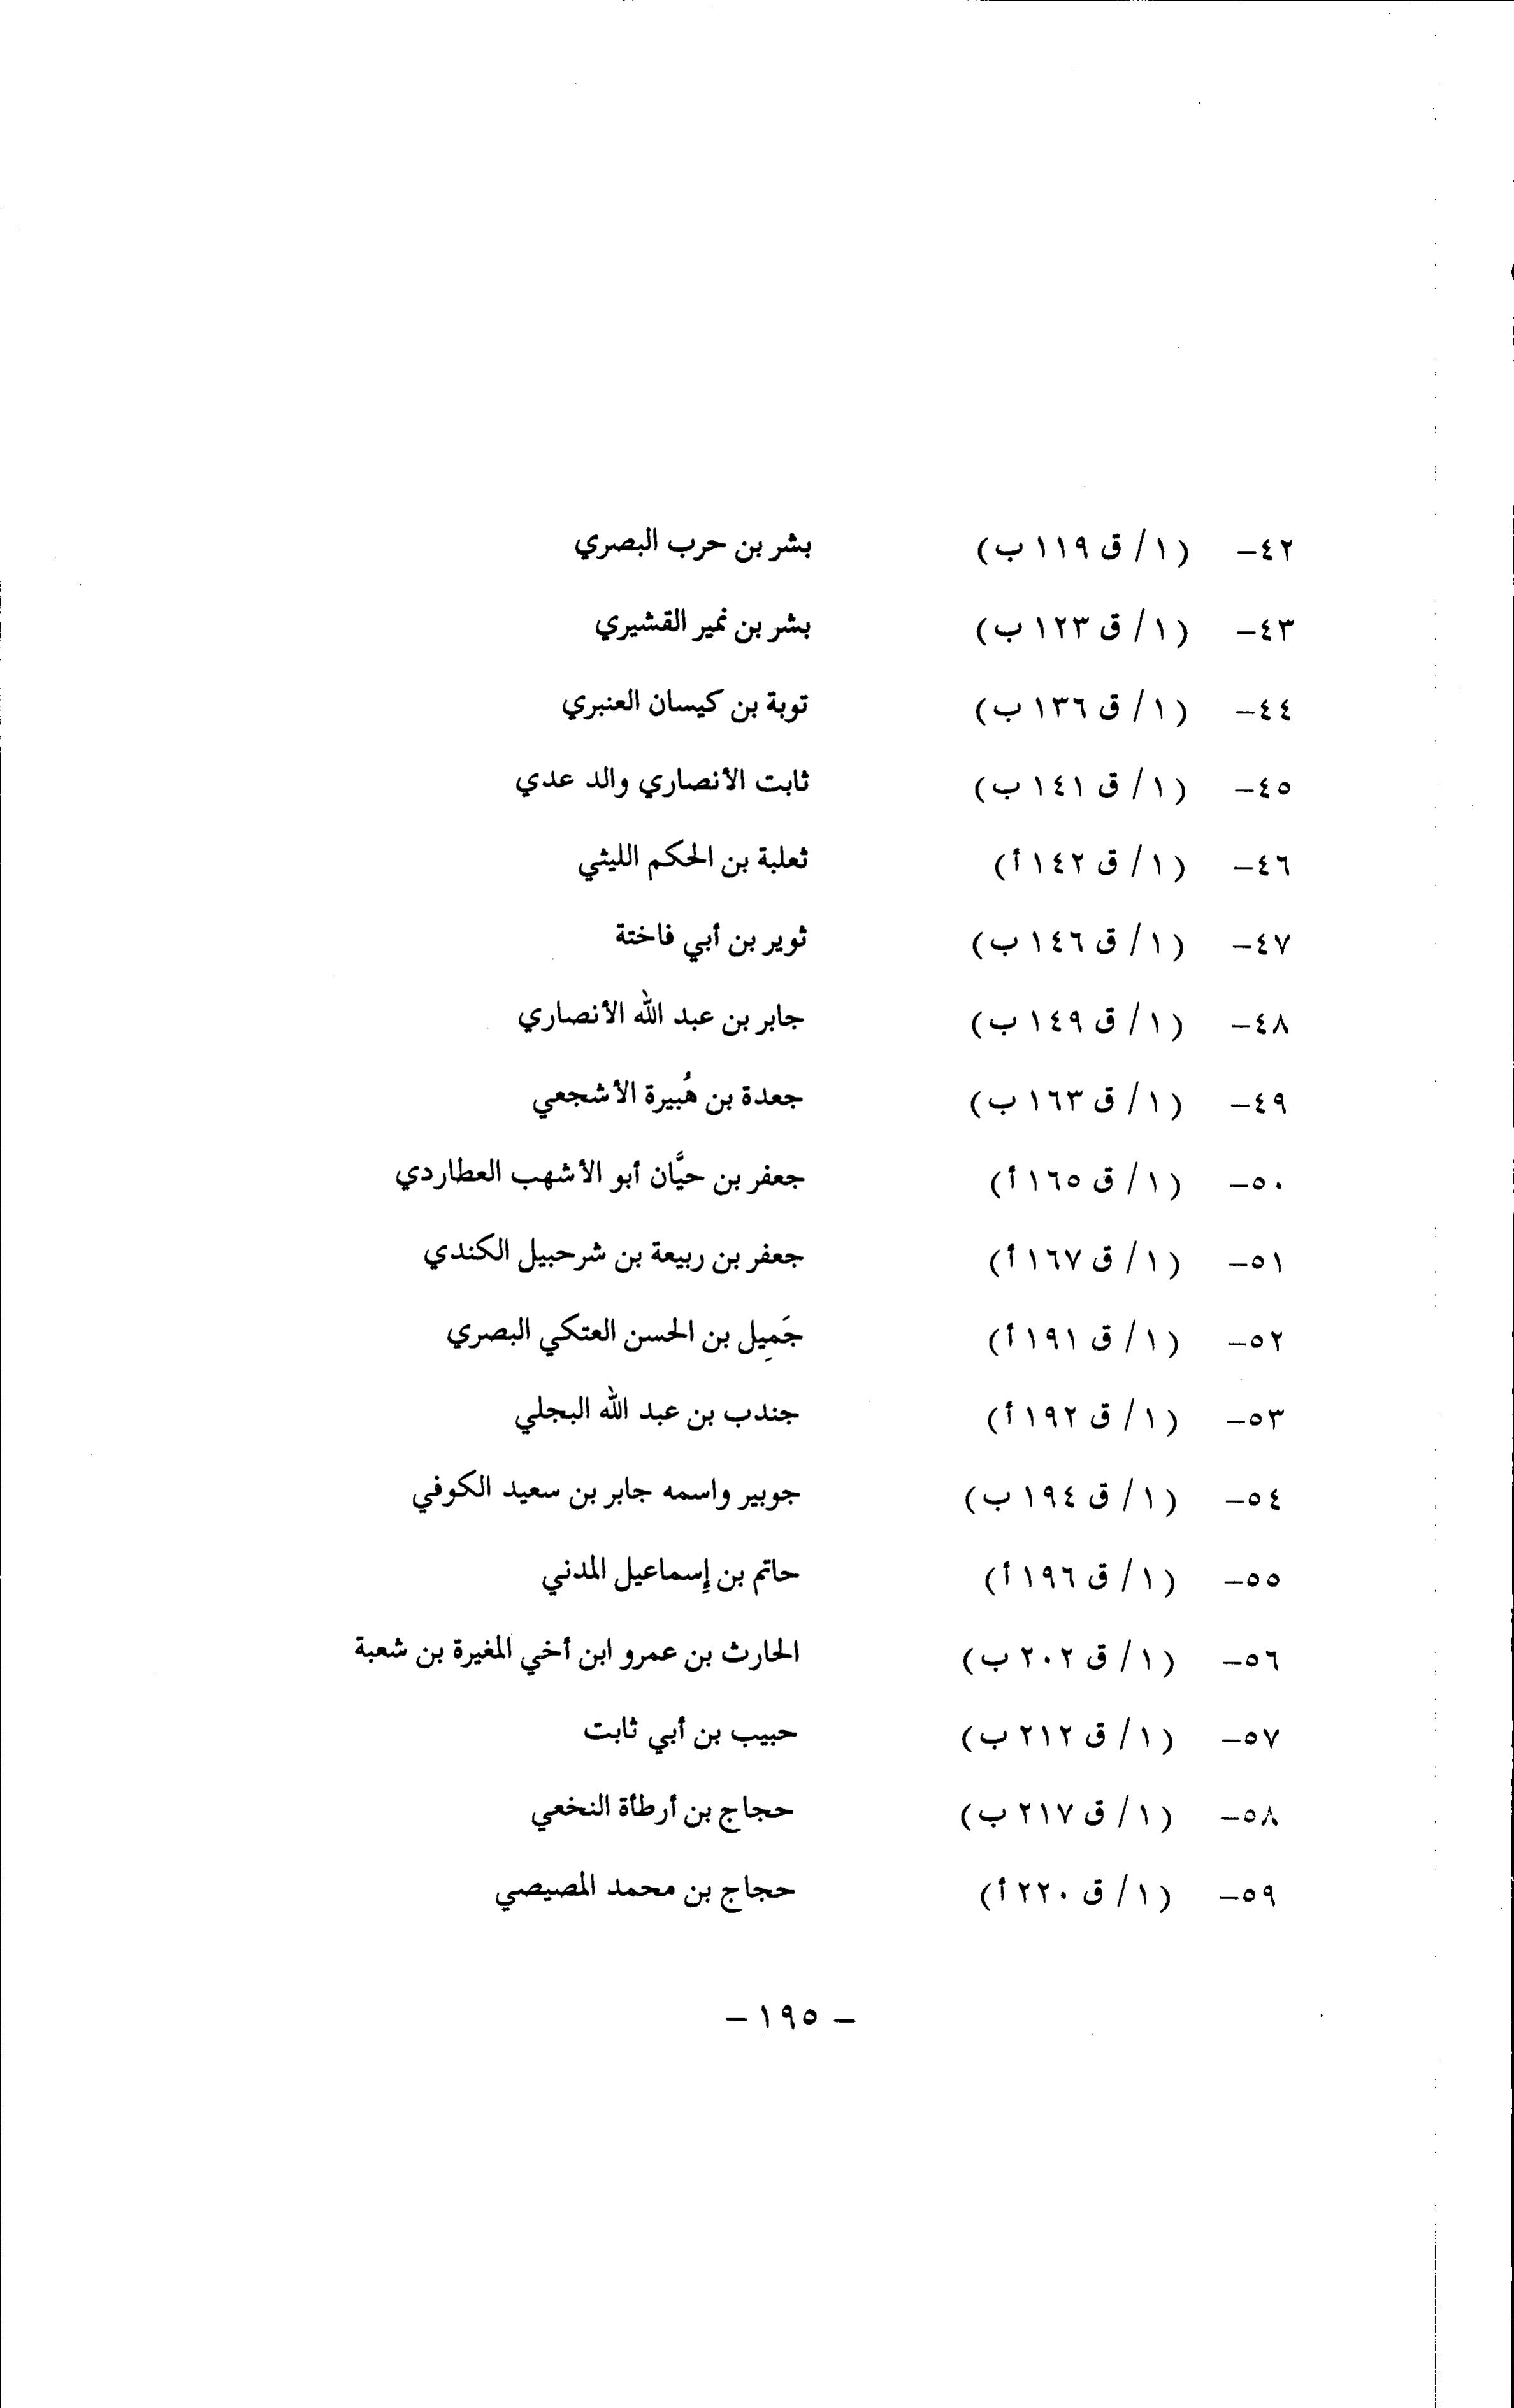 ٤٢- (١/ ق ١١٩ ب) بشر بن حرب البصري
٤٣- (١/ ق ١٢٣ ب) بشر بن نمير القشيري
٤٤- (١/ ق ١٣٦ ب) توبة بن كيسان العنبري
٤٥- (١/ ق ١٤١ ب) ثابت الأنصاري والد عدي
٤٦- (١/ ق ١٤٢ أ) ثعلبة بن الحكم الليثي
٤٧- (١/ ق ١٤٦ ب) ثوير بن أبي فاختة
٤٨- (١/ ق ١٤٩ ب) جابر بن عبد الله الأنصاري
٤٩- (١/ ق ١٦٣ ب) جعدة بن هُبيرة الأشجعي
٥٠- (١/ ق ١٦٥ أ) جعفر بن حيَّان أبو الأشهب العطاردي
٥١- (١/ ق ١٦٧ أ) جعفر بن ربيعة بن شرحبيل الكندي
٥٢- (١/ ق ١٩١ أ) جَمِيل بن الحسن العتكي البصري
٥٣- (١/ ق ١٩٢ أ) جندب بن عبد الله البجلي
٥٤- (١/ ق ١٩٤ ب) جوبير واسمه جابر بن سعيد الكوفي
٥٥- (١/ ق ١٩٦ أ) حاتم بن إسماعيل المدني
٥٦- (١/ ق ٢٠٢ ب) الحارث بن عمرو ابن أخي المغيرة بن شعبة
٥٧- (١/ ق ٢١٢ ب) حبيب بن أبي ثابت
٥٨- (١/ ق ٢١٧ ب) حجاج بن أرطأة النخعي
٥٩- (١/ ق ٢٢٠ أ) حجاج بن محمد المصيصي
- ١٩٥ -